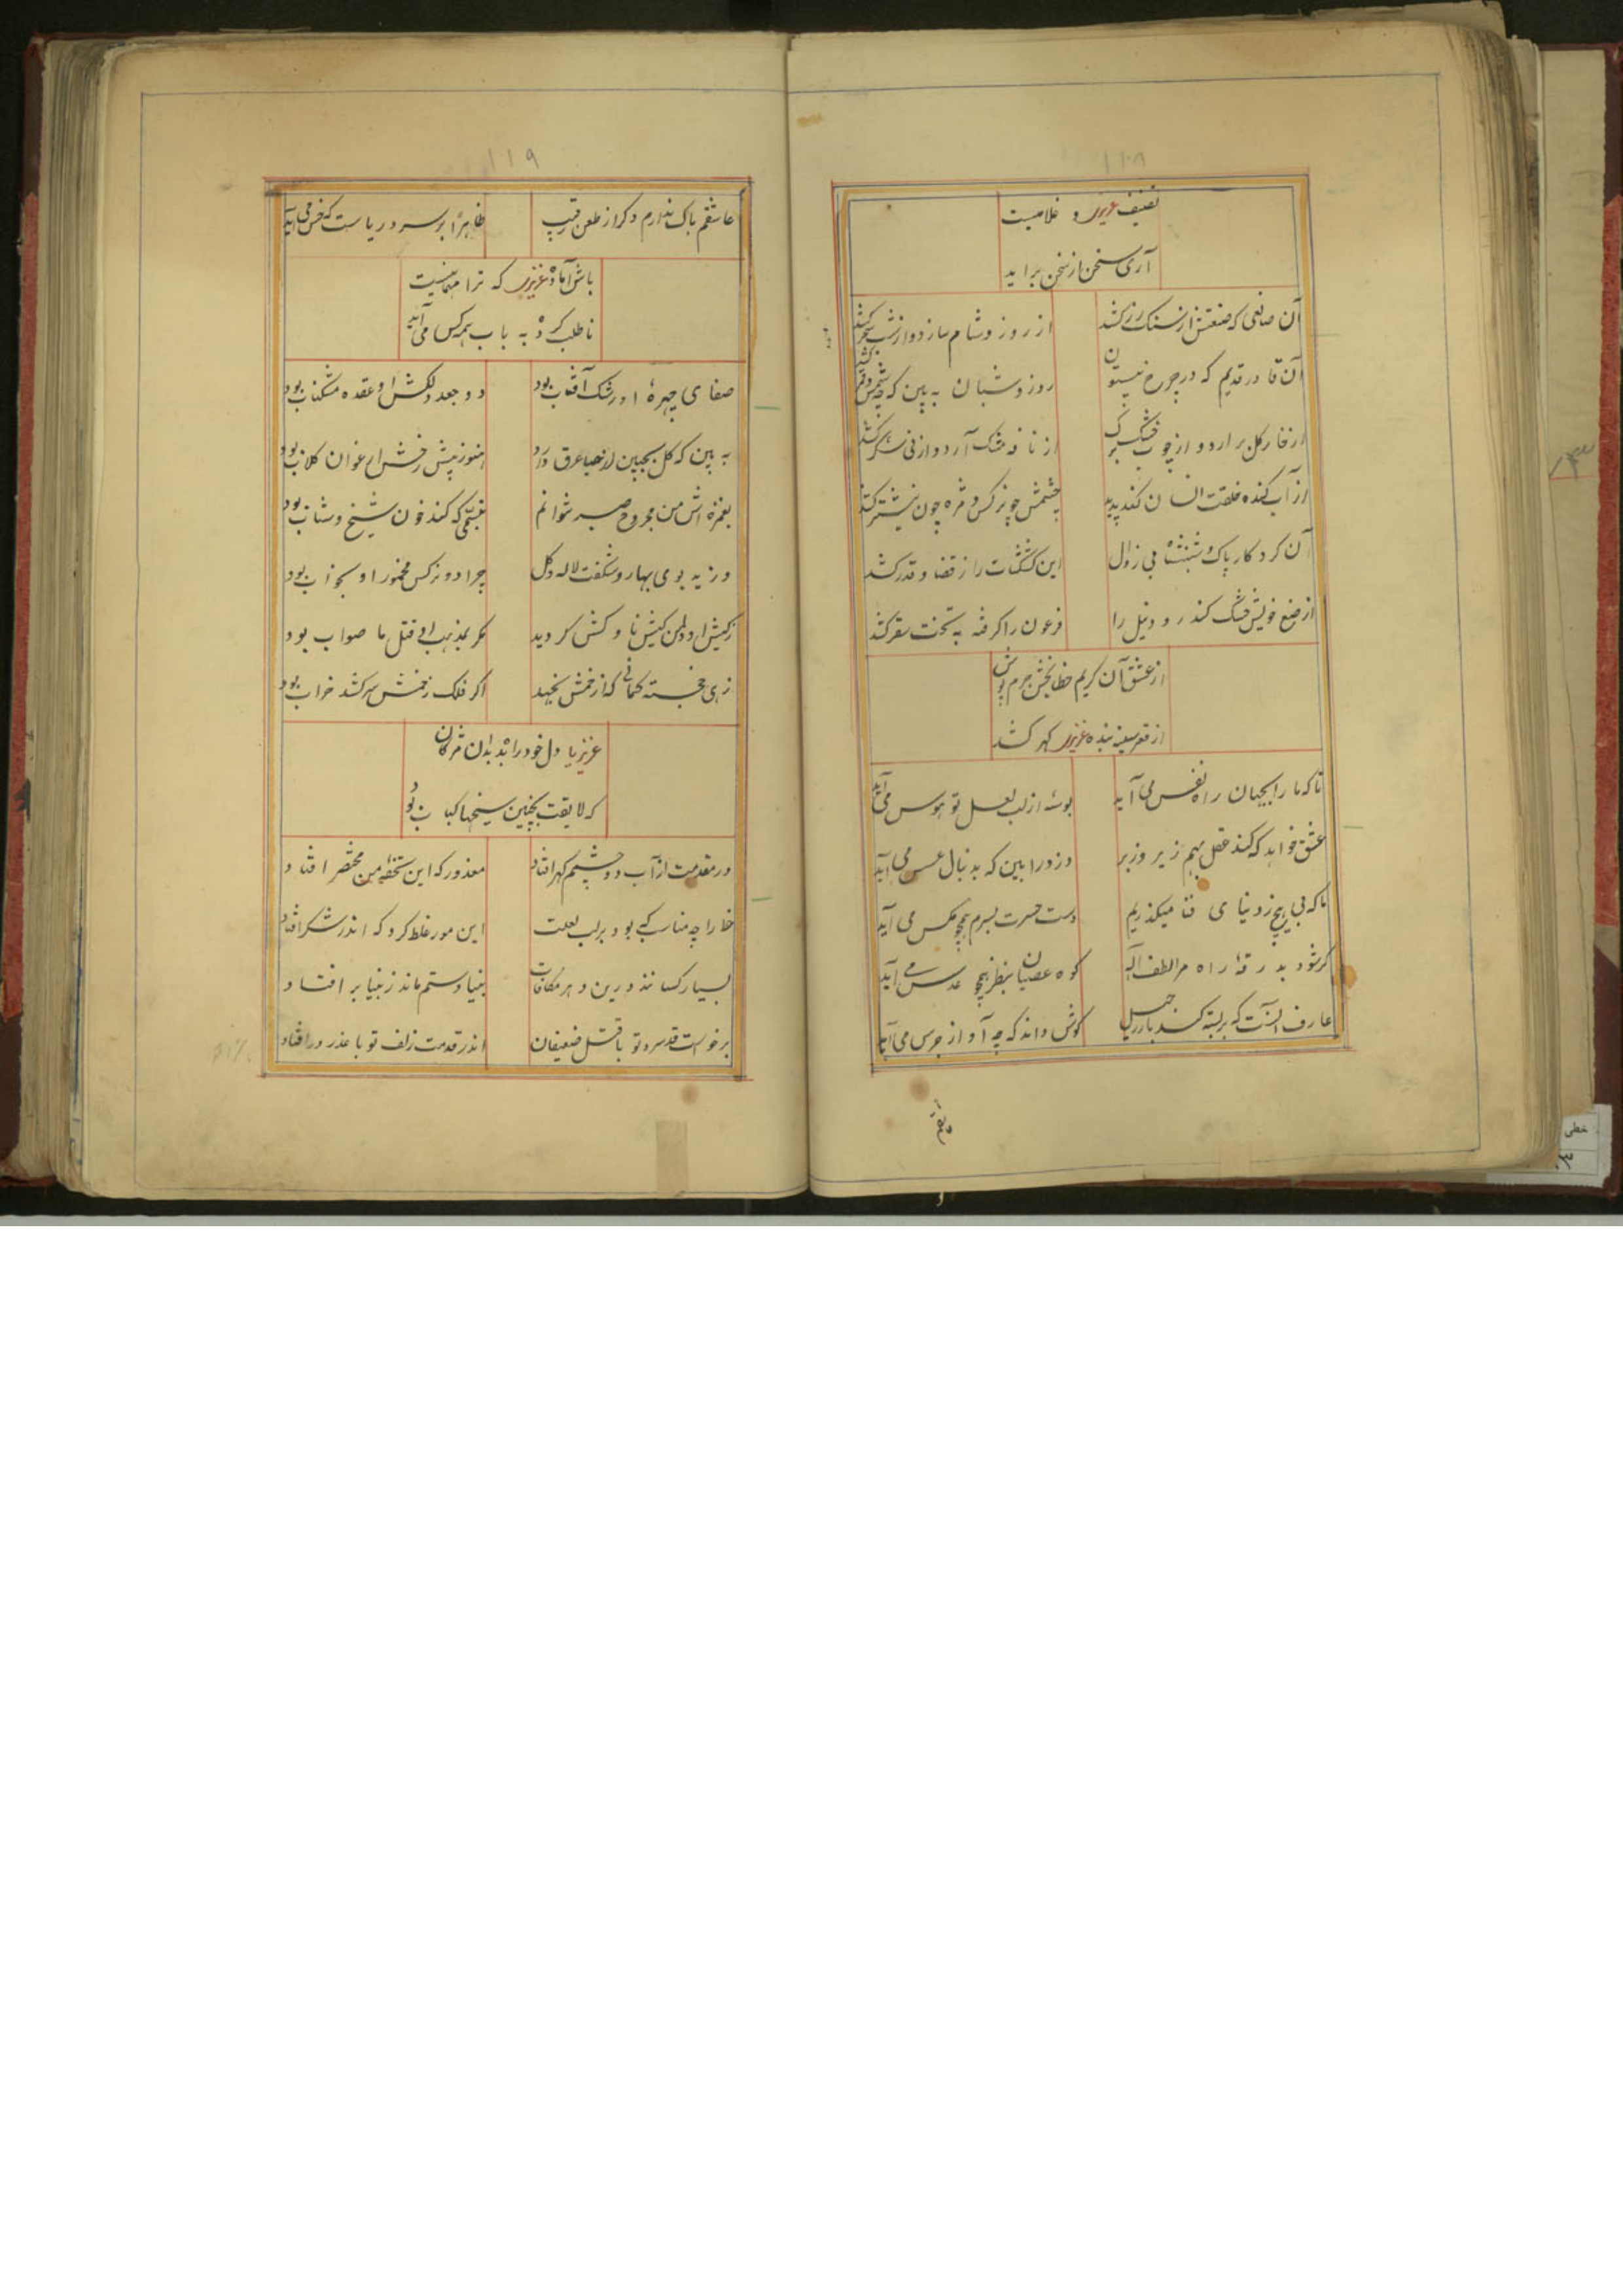 ۱۱۸
تصنیف عزیز و غلامیت
آری سخن از سخن براید
آن صانعی که صنعتش از سنک زر کشد
از روز و شام سازد و از شب سحر کشد
آن قادر قدیم که در چرخ بیستون
روز و شبان به بین که چه شمس و قمر کشد
از خار کل بر ارد و از چوب خشک برک
از نافه مشک آرد و از نی شکر کشد
از آب کنده خلقت انسان کند پدید
چشمش چو نرکس و مژه چون نیشتر کشد
آن کردکار پاک و شهنشاه بی زوال
این کششات را ز قضا و قدر کشد
از صنع خویش خشک کند رود نیل را
فرعون را کرفته به تحت سقر کشد
از عشق آن کریم خطا بخش جرم پوش
از قعر سینه بنده عزیز کهر کشد
تا که ما را بجهان راه نفس می آید
بوسه از لب لعل تو هوس می آید
عشق خواهد که کند عقل بهم زیر و زبر
دزد را بین که بدنبال عسس می آید
ما که بی هیچ ز دنیای فنا میکذریم
دست حسرت بسرم همچو مکس می آید
کر شود بدرقه راه مرا لطف اله
کوه عصیان بنظر همچو عدس می آید
عارف آنست که بربسته کند بار رحیل
کوش داند که چه آواز جرس می آید
عاشقم
۱۱۹
عاشقم باک ندارم دکر از طعن رقیب
ظاهرا بر سر دریاست که خس می آید
باش آماده عزیز که ترا مهمانیست
ناطلب کرده به باب همه کس می آید
صفای چهره او رشک آفتاب بود
دو جعد دلکش او عقده مشکناب بود
به بین که کل بجبین از حیا عرق دارد
هنوز پیش رخش ارغوان کلاب بود
بغمزه اش من مجروح صبر نتوانم
تبسمی که کند خون شیخ و شاب بود
وزید بوی بهار و شکفت لاله و کل
چرا دو نرکس مخمور او بخواب بود
ز کیش او دل من کیش ناوکش کردید
مکر بمذهب او قتل ما صواب بود
زهی خجسته کمانی که از خمش نجهد
اکر فلک ز خمش سر کشد خراب بود
عزیز یا دل خود را بده بدان مژکان
که لایقت بچنین سیخها کباب بود
در مقدمت از آب دو چشمم کهر افتاد
معذور که این تحفه من مختصر افتاد
خارا چه مناسب که بود بر لب لعلت
این مور غلط کرد که اندر شکر افتاد
بسیار کسانند درین دهر مکافات
بنیاد ستم ماند ز بنیا بر افتاد
برخواست قد سرو تو با قتل ضعیفان
اندر قدمت زلف تو با عذر در افتاد
خطی